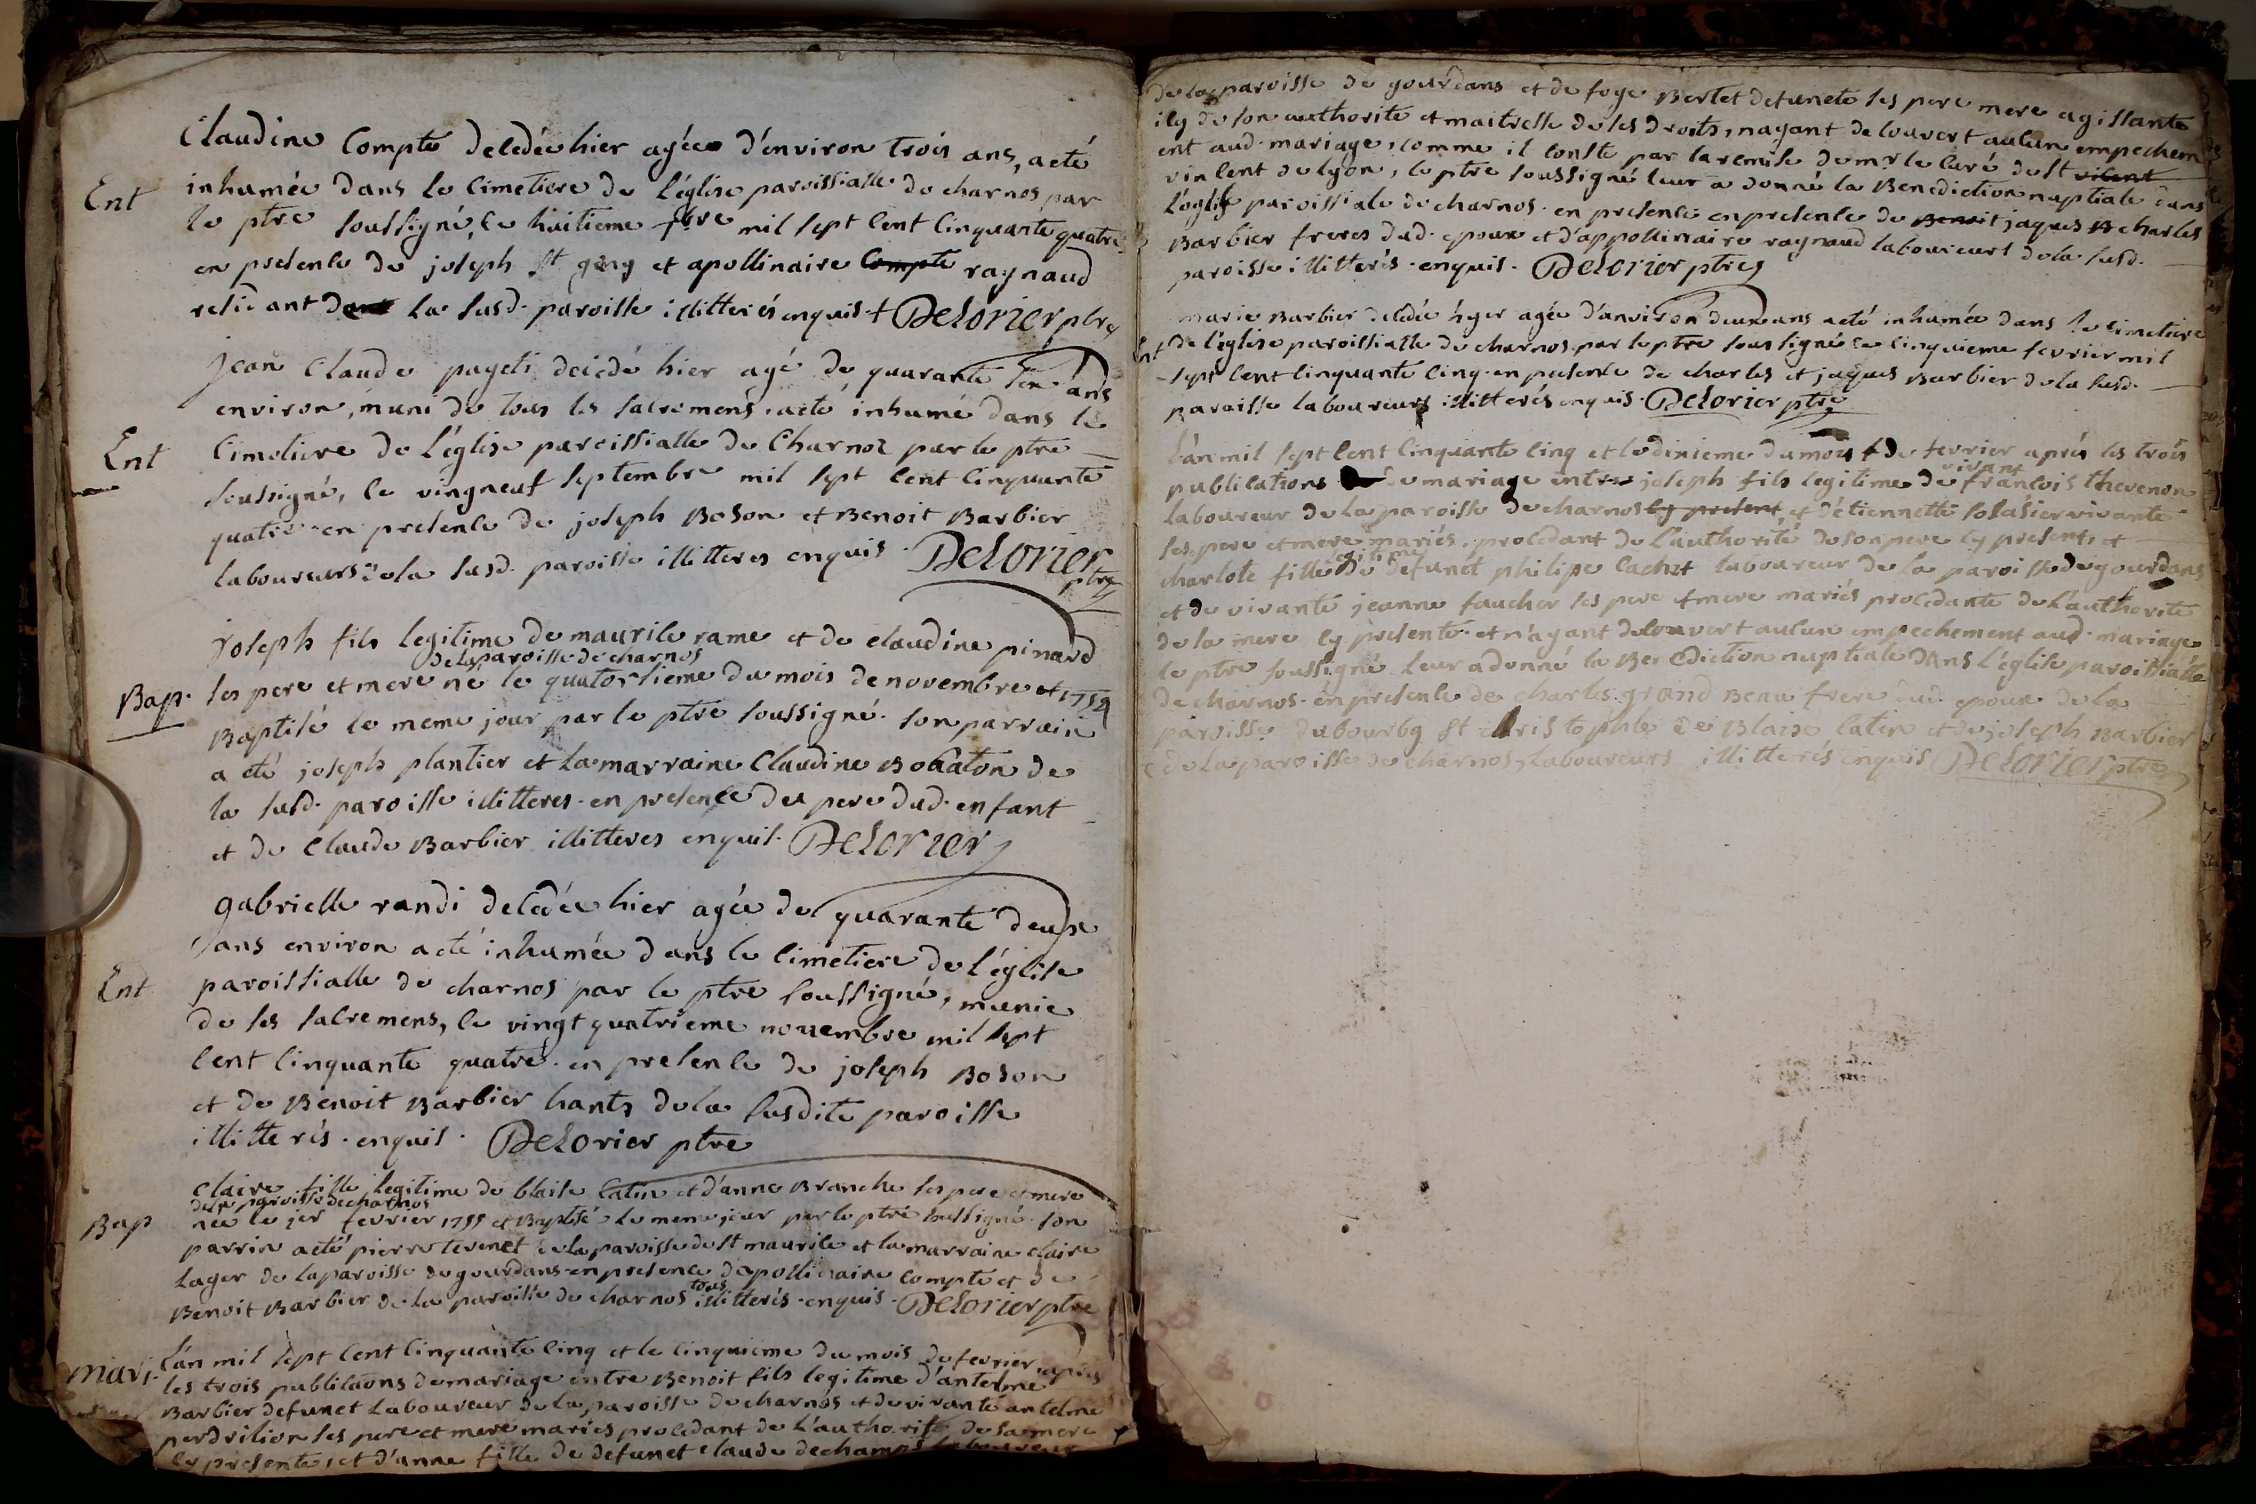 Claudine Compte decedée hier agée d'environ trois ans, a eté
Ent
inhumée dans le cimetiere de l'église paroissialle de charnos par
le ptre soussigné, le huitieme 7bre mil sept cent cinquante quatre
en presence de joseph St et apollinaire Compte raynaud
residant dans la susd. paroisse illitterés enquis + Delorier ptre
jean Claude pageti decedé hier agé de quarante ans
environ, muni de tous les sacremens, a eté inhumé dans le
Ent
cimetiere de l'église paroissialle de Charnoz par le ptre
soussigné, le vingneuf septembre mil sept cent cinquante
quatre en presence de joseph Boson et Benoit Barbier
laboureurs de la susd. paroisse illitteres enquis. Delorier
ptre
joseph fils legitime de maurile rame et de claudine pinard
de la paroisse de charnos
Bap.
ses pere et mere né le quatorsieme du mois de novembre et 1754
Baptisé le meme jour par le ptre soussigné. son parrain
a eté joseph plantier et la marraine Claudine Bohaton de
la susd. paroisse illitteres. en presence du pere dud. enfant
et de Claude Barbier illitteres enquis. Delorier
gabrielle randi decedée hier agée de quarante deux
ans environ a eté inhumée dans le cimetiere de l'église
Ent
paroissialle de charnos par le ptre soussigné, munie
de ses sacremens, le vingt quatrieme novembre mil sept
cent cinquante quatre. en presence de joseph Boson
et de Benoit Barbier hants de la susdite paroisse
illitterés. enquis. Delorier ptre
Claire fille legitime de blaise Catin et d'anne Branche ses pere et mere
de la paroisse de charnos
Bap
née le jer fevrier 1755 et Baptisé le meme jour par le ptre soussigné. son
parrin a eté pierre tevenet de la paroisse de St maurile et la marraine claire
Lager de la paroisse de gourdans en presence d'apollinaire compte et de
tous
Benoit Barbier de la paroisse de charnos illitterés. enquis. Delorier ptre
mari.
L'an mil sept cent cinquante cinq et le cinquieme du mois de fevrier après
les trois publications de mariage entre Benoit fils legitime d'antelme
Barbier defunct laboureur de la paroisse de charnos et de vivante antelme
perdrilion ses pere et mere mariés procedant de l'authorité de sa mere
cy presente, et d'anne fille de defunct claude dechamps laboureur
de la paroisse de gourdans et de foye Bertet defuncte ses pere mere agissante
icy de son authorité et maitresse de ses droits, nayant decouvert aucun empechem
ent aud. mariage, comme il conste par la remise de mr le curé de st vicent
vincent de lyon, le ptre soussigné leur a donné la Benediction nuptiale dans
l'église paroissiale de charnos. en presence en presence de Benoit jaques B charles
Barbier freres dud. epoux et d'appollinaire raynaud laboureurs de la susd.
paroisse illitterés. enquis. Delorier ptre
marie Barbier decedée hyer agée d'anviron deux ans a eté inhumée dans le cimetiere
Ent
de l'église paroissialle de charnos par le ptre soussigné le cinquieme fevrier mil
sept cent cinquante cinq. en presence de charles et jaques Barbier de la susd.
paroisse laboureurs illitterés enquis. Delorier ptre
L'an mil sept cent cinquante cinq et le dixieme du mois de fevrier après les trois
vivant
publications de mariage entre joseph fils legitime de francois thevenon
laboureur de la paroisse de charnos cy present, et d'étiennette vivante
ses pere et mere mariés. procedant de l'authorité de son pere cy present, et
legitime
charlote fille de defunct philipe Cachet laboureur de la paroisse de gourdans
et de vivante jeanne faucher ses pere et mere mariés procedante de l'authorité
de la mere cy presente. et n'ayant decouvert aucun empechement aud. mariage
le ptre soussigné leur a donné la Benediction nuptiale dans l'église paroissialle
de charnos. en presence de charles grand Beau frere dud. epoux de la
paroisse du bourbg St christophle de Blaise Catin et de joseph Barbier
de la paroisse de charnos, laboureurs illitterés enquis Delorier ptre